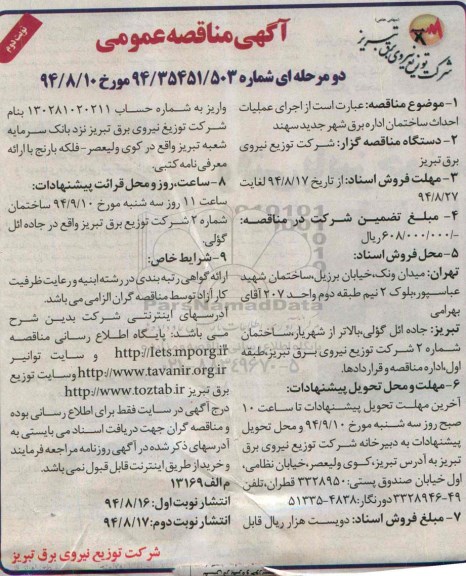 نوبت دوم
آگهی مناقصه عمومی
شرکت توزیع نیروی برق تبریز
دو مرحله ای شماره ۹۴/۳۵۴۵۱/۵۰۳ مورخ ۹۴/۸/۱۰
۱-موضوع مناقصه: عبارت است از اجرای عملیات
احداث ساختمان اداره برق شهر جدید سهند
۲- دستگاه مناقصه گزار: شرکت توزیع نیروی
برق تبریز
۳-مهلت فروش اسناد: از تاریخ ۹۴/۸/۱۷ لغایت
۹۴/۸/۲۷
۴- مبلغ تضمین شرکت در مناقصه:
۶۰۸/۰۰۰/۰۰۰/- ریال
۵-محل فروش اسناد:
تهران: میدان ونک، خیابان برزیل، ساختمان شهید
عباسپور، بلوک ۲ نیم طبقه دوم واحد ۲۰۷ آقای
بهرامی
تبریز: جاده ائل گؤلی، بالاتر از شهریار، ساختمان
شماره ۲ شرکت توزیع نیروی برق تبریز، طبقه
اول، اداره مناقصه و قراردادها.
۶-مهلت و محل تحویل پیشنهادات:
آخرین مهلت تحویل پیشنهادات تا ساعت ۱۰
صبح روز سه شنبه مورخ ۹۴/۹/۱۰ و محل تحویل
پیشنهادات به دبیرخانه شرکت توزیع نیروی برق
تبریز به آدرس تبریز، کوی ولیعصر، خیابان نظامی،
اول خیابان صندوق پستی: ۳۳۲۸۹۵۰ قطران، تلفن
۳۳۲۸۹۴۶-۴۹ دورنگار: ۴۸۳۸-۵۱۳۳۵
۷- مبلغ فروش اسناد: دویست هزار ریال قابل
واریز به شماره حساب ۱۳۰۲۸۱۰۲۰۲۱۱ بنام
شرکت توزیع نیروی برق تبریز نزد بانک سرمایه
شعبه تبریز واقع در کوی ولیعصر- فلکه بارنج با ارائه
معرفی نامه کتبی.
۸-ساعت، روز و محل قرائت پیشنهادات:
ساعت ۱۱ روز سه شنبه مورخ ۹۴/۹/۱۰ ساختمان
شماره ۲ شرکت توزیع برق تبریز واقع در جاده ائل
گؤلی.
۹-شرایط خاص:
ارائه گواهی رتبه بندی در رشته ابنیه و رعایت ظرفیت
کار آزاد توسط مناقصه گران الزامی می باشد.
آدرسهای اینترنتی شرکت بدین شرح
می باشد: پایگاه اطلاع رسانی مناقصه
http://iets.mporg.ir و سایت توانیر
http://www.tavanir.org.ir وسایت توزیع
برق تبریز http://www.toztab.ir
درج آگهی در سایت فقط برای اطلاع رسانی بوده
و مناقصه گران جهت دریافت اسناد می بایستی به
آدرسهای ذکر شده در آگهی روزنامه مراجعه فرمایند
و خرید از طریق اینترنت قابل قبول نمی باشد.
م الف ۱۳۱۶۹
انتشار نوبت اول: ۹۴/۸/۱۶
انتشار نوبت دوم: ۹۴/۸/۱۷
شرکت توزیع نیروی برق تبریز
ParsNamadData